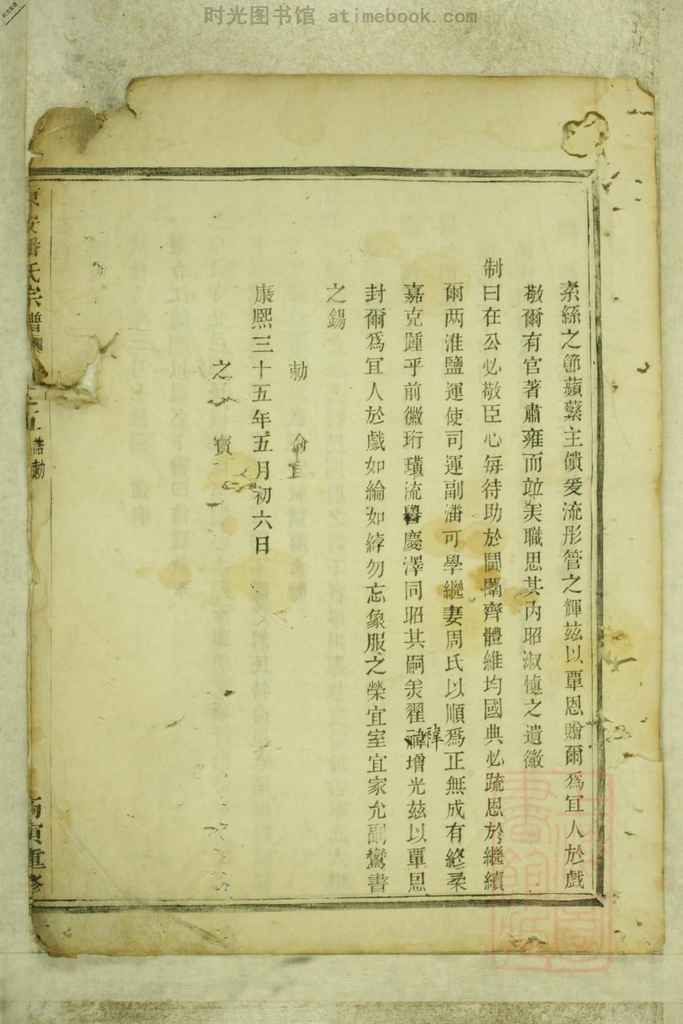 时光图书馆 atimebook.com
素絲之節蘋蘩主饋爰流彤管之輝茲以覃恩贈爾爲宜人於戲
敬爾有官著肅雍而竝美職思其內昭淑慎之遺徽
制曰在公必敬臣心每待助於閨閫齊體維均國典必疏恩於繼續
爾两淮鹽運使司運副潘可學繼妻周氏以順爲正無成有終柔
嘉克踵乎前徽珩璜流譽慶澤同昭其嗣美翟褘增光茲以覃恩
褘
封爾爲宜人於戲如綸如綍勿忘象服之榮宜室宜家允副鸞書
之錫
勅命
康熙三十五年五月初六日
之寳
氏宗譜
誥勅
重修